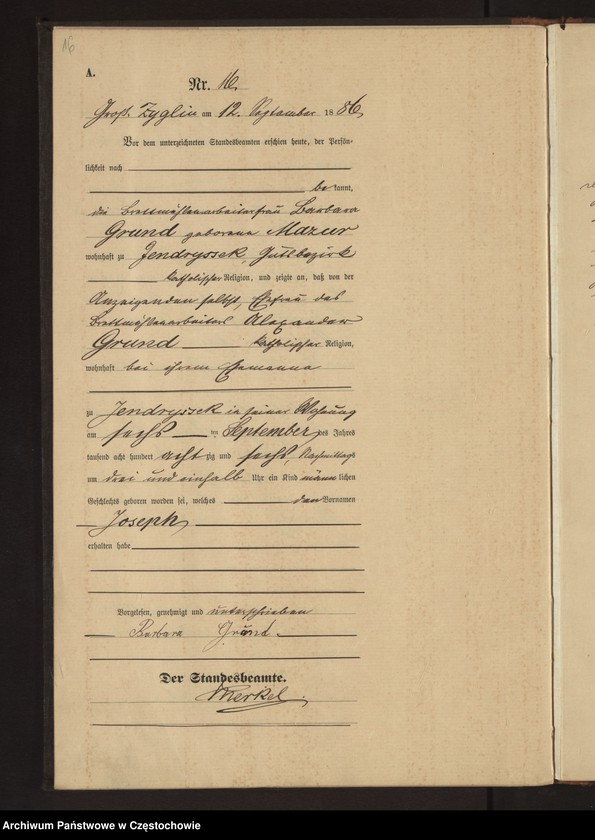 16
A.
Nr. 16.
Groß Zyglin am 12. September 1886.
Vor dem unterzeichneten Standesbeamten erschien heute, der Persön-
lichkeit nach
bekannt,
die Brettmühlenarbeiterfrau Barbara
Grund geborene Mazur
wohnhaft zu Jendryssek, Gutsbezirk
katholischer Religion, und zeigte an, daß von der
Anzeigenden selbst, Ehefrau des
Brettmühlenarbeiters Alexander
Grund katholischer Religion,
wohnhaft bei ihrem Ehemanne
zu Jendryssek in seiner Wohnung
am sechsten September des Jahres
tausend acht hundert achtzig und sechs, Nachmittags
um drei und einhalb Uhr ein Kind männlichen
Geschlechts geboren worden sei, welches den Vornamen
Joseph
erhalten habe
Vorgelesen, genehmigt und unterschrieben
Barbara Grund.
Der Standesbeamte.
Merkel.
Archiwum Państwowe w Częstochowie